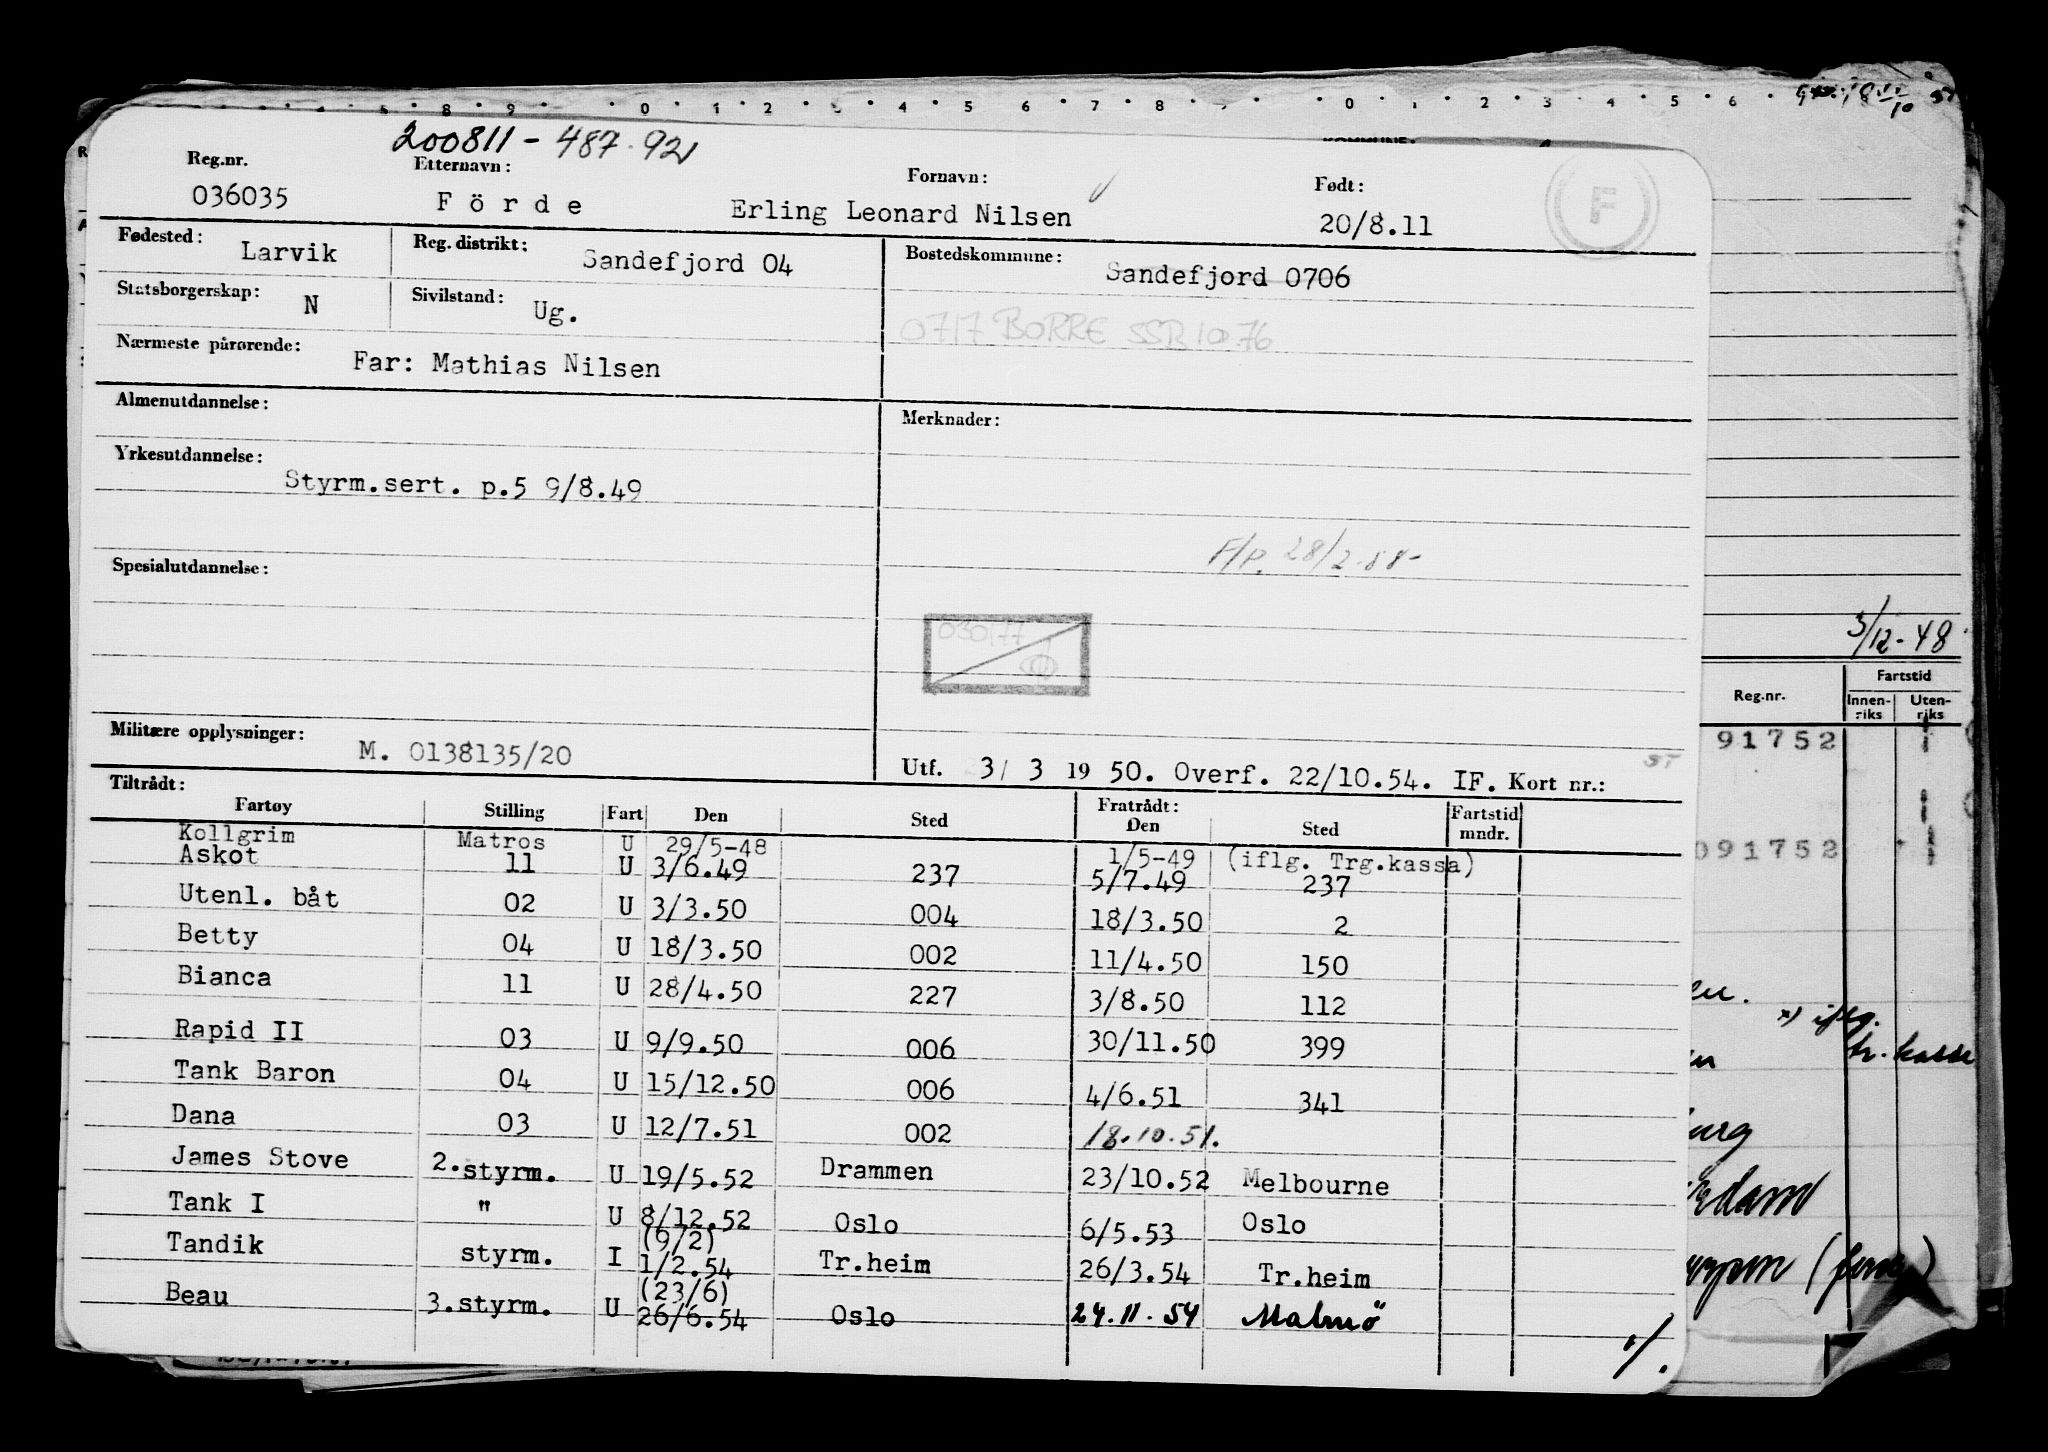 200811-487.92
Reg.nr. Etternavn: Fornavn: Født:
036035 Förde Erling Leonard Nilsen 20/8.11
F
Fødested: Larvik Reg. distrikt: Sandefjord 04 Bostedskommune: Sandefjord 0706
Statsborgerskap: N Sivilstand: Ug.
0717 BORRE SSR 10.76
Nærmeste pårørende: Far: Mathias Nilsen
Almenutdannelse: Merknader:
Yrkesutdannelse: Styrm.sert. p.5 9/8.49
F/P. 28/2.58-
Spesialutdannelse:
030177
Militære opplysninger: M. 0138135/20
Utf. 3/ 3 19 50. Overf. 22/10.54. IF. Kort nr.:
Tiltrådt: Fratrådt:
Fartøy Stilling Fart Den Sted Den Sted Fartstid mndr.
Kollgrim Matros U 29/5-48 1/5-49 (iflg. Trg.kassa)
Askot 11 U 3/6.49 237 5/7.49 237
Utenl. båt 02 U 3/3.50 004 18/3.50 2
Betty 04 U 18/3.50 002 11/4.50 150
Bianca 11 U 28/4.50 227 3/8.50 112
Rapid II 03 U 9/9.50 006 30/11.50 399
Tank Baron 04 U 15/12.50 006 4/6.51 341
Dana 03 U 12/7.51 002 18.10.51.
James Stove 2.styrm. U 19/5.52 Drammen 23/10.52 Melbourne
Tank I " U 8/12.52 Oslo 6/5.53 Oslo
Tandik styrm. I (9/2) 1/2.54 Tr.heim 26/3.54 Tr.heim
Beau 3.styrm. U (23/6) 26/6.54 Oslo 24.11.54 Malmö
·/.
3/12-48
Reg.nr. Fartstid
Innen-riks Uten-riks
91752
091752
x) iflg.
tr.kasse